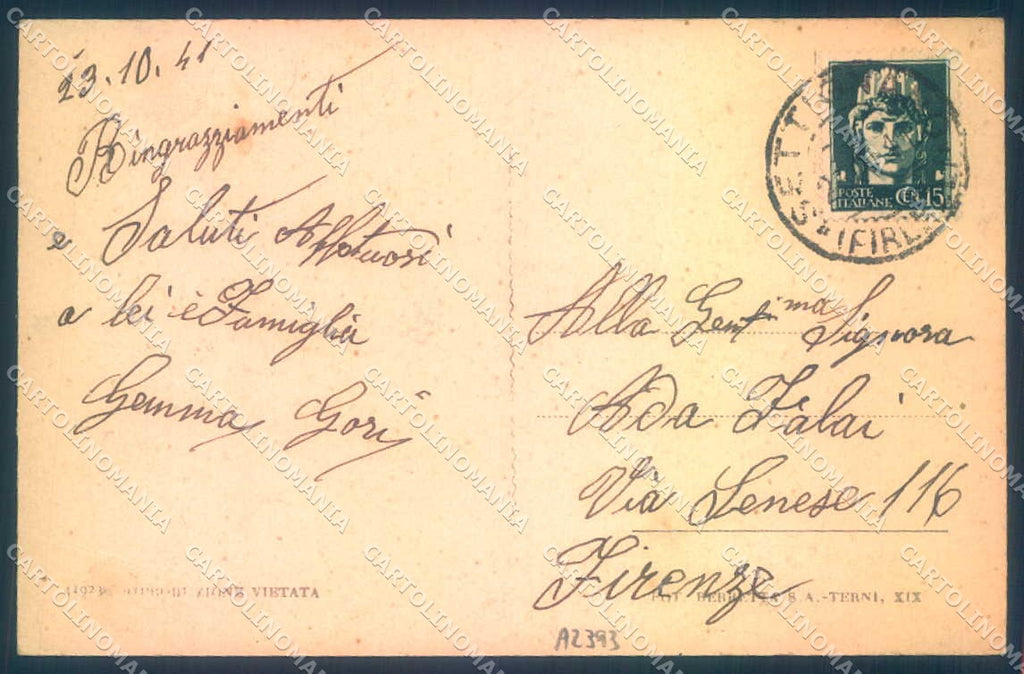 23.10.41
Ringrazziamenti
e Saluti Affetuosi
a lei è Famiglia
Gemma Gori
POSTE
ITALIANE CEN. 15
SETTI (FIRE
Alla Gentma Signora
Ada Falai
Via Senese 116
Firenze
RIPRODUZIONE VIETATA
BERRETTA S.A.-TERNI, XIX
A2393
CARTOLINOMANIA